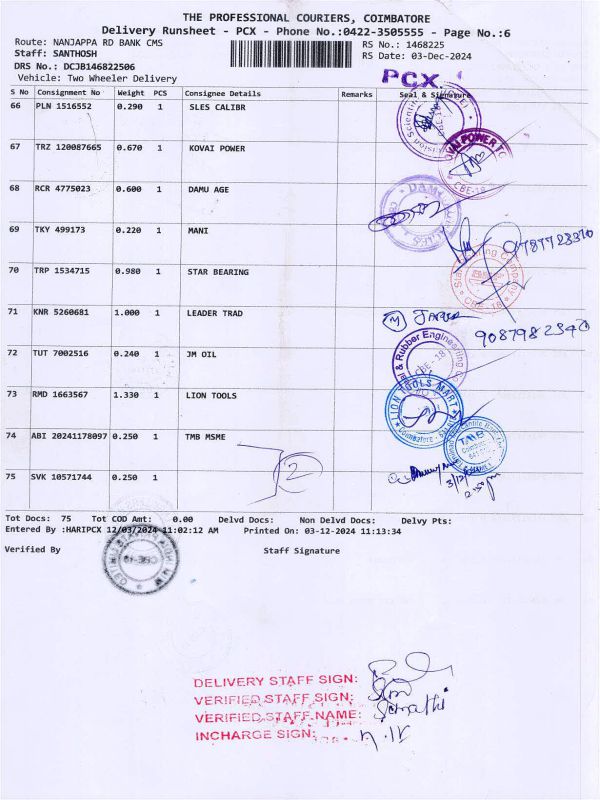 THE PROFESSIONAL COURIERS, COIMBATORE
Delivery Runsheet - PCX - Phone No.:0422-3505555 - Page No.:6
Route: NANJAPPA RD BANK CMS RS No.: 1468225
Staff: SANTHOSH RS Date: 03-Dec-2024
DRS No.: DCJB146822506
Vehicle: Two Wheeler Delivery
PCX
S No Consignment No Weight PCS Consignee Details Remarks Seal & Signature
66 PLN 1516552 0.290 1 SLES CALIBR
67 TRZ 120087665 0.670 1 KOVAI POWER
68 RCR 4775023 0.600 1 DAMU AGE
69 TKY 499173 0.220 1 MANI
70 TRP 1534715 0.980 1 STAR BEARING
71 KNR 5260681 1.000 1 LEADER TRAD
72 TUT 7002516 0.240 1 JM OIL
73 RMD 1663567 1.330 1 LION TOOLS
LION TOOLS MART
74 ABI 20241178097 0.250 1 TMB MSME
TMB
2
75 SVK 10571744 0.250 1
Tot Docs: 75 Tot COD Amt: 0.00 Delvd Docs: Non Delvd Docs: Delvy Pts:
Entered By :HARIPCX 12/03/2024 11:02:12 AM Printed On: 03-12-2024 11:13:34
Verified By Staff Signature
DELIVERY STAFF SIGN:
VERIFIED STAFF SIGN:
VERIFIED STAFF NAME:
INCHARGE SIGN: